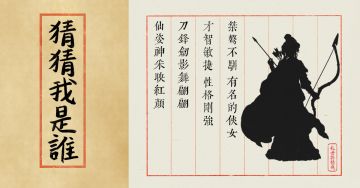 猜猜我是誰
桀驁不馴 有名的俠女
才智敏捷 性格剛強
刀鋒劍影舞翩翩
仙姿神采映紅顏